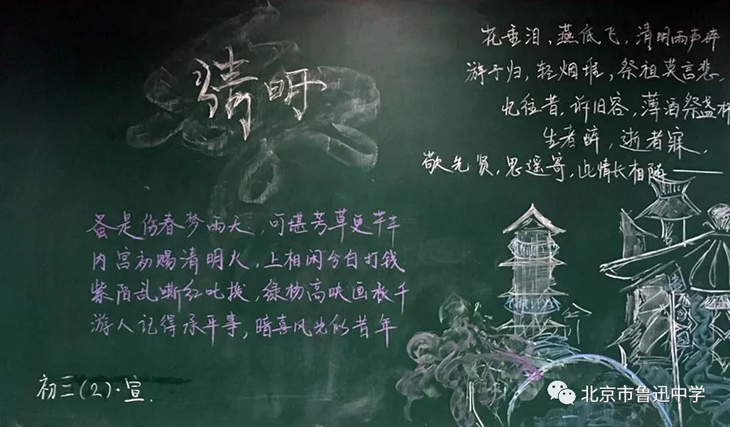 清明
花垂泪,燕低飞,清明雨声碎
游子归,轻烟堆,祭祖莫言悲.
忆往昔,诉旧容,薄酒祭盏杯
生者醉,逝者寐,
敬先贤,思遥寄,此情长相随——
蚤是伤春梦雨天,可堪芳草更芊芊
内宫初赐清明火,上相闲分白打钱
紫陌乱嘶红叱拨,绿杨高映画秋千
游人记得承平事,暗喜风光似昔年
初三(2)·宣.
北京市鲁迅中学